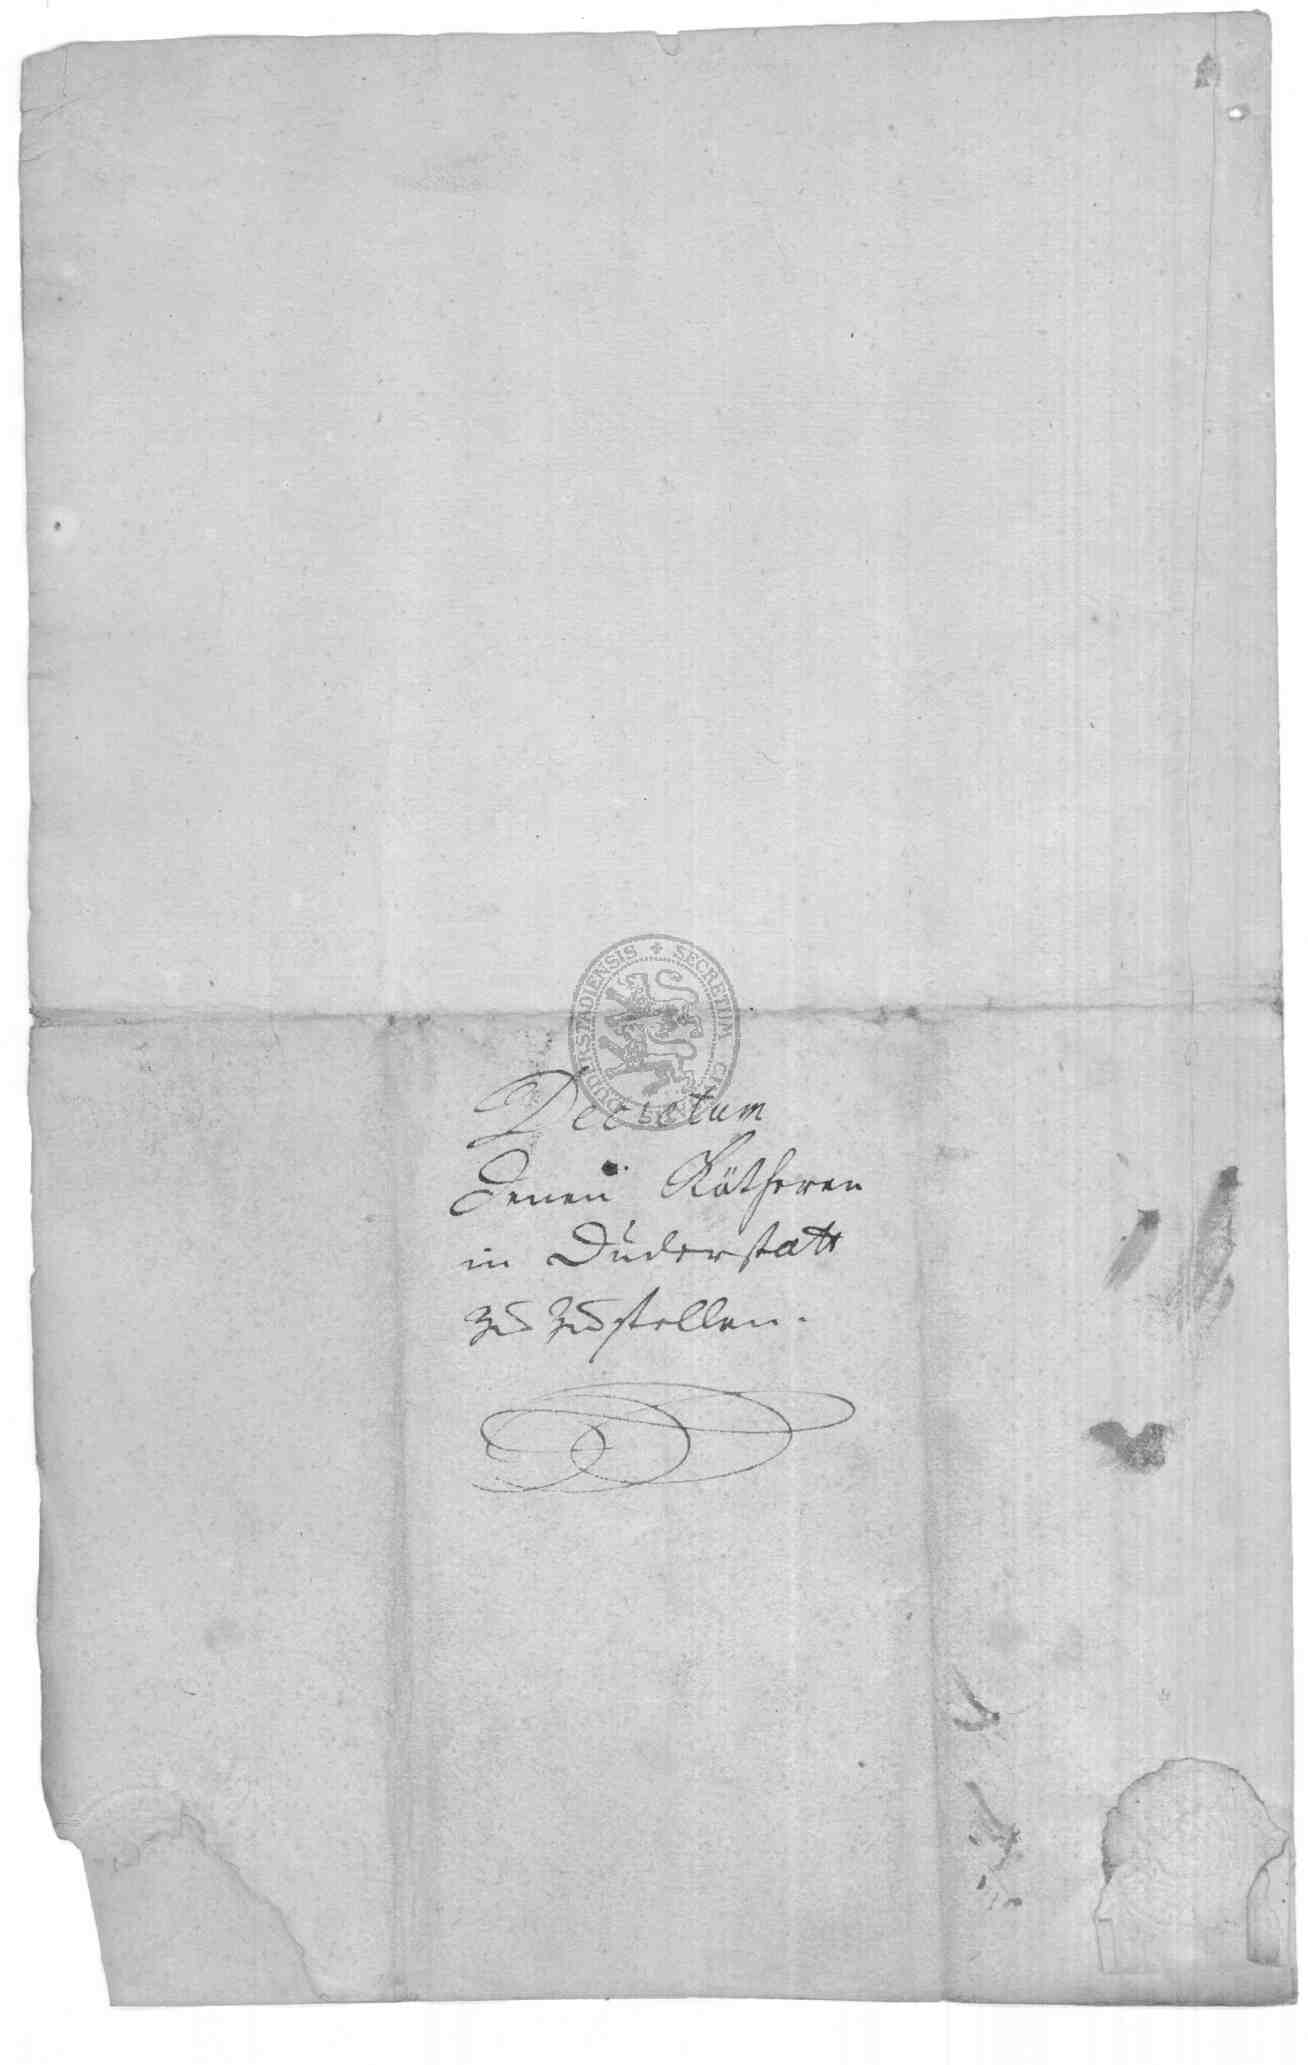 SECRETUM CIVI DUDERSTADIENSIS
Decretum
denen Räthsren
in Duderstatt
zu zustellen.